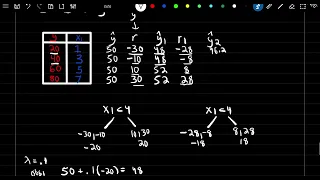 ŷ r ŷ₁ r₁ ŷ₂
20 1 50 -30 48 -28 46.2
40 3 50 -10 48 -8
60 5 50 10 52 8
7 50 30 52 28
X₁<4 X₁<4
-30,-10 10,30 -28,-8 8,28
-20 20 -18 18
50 + .1(-20) = 48